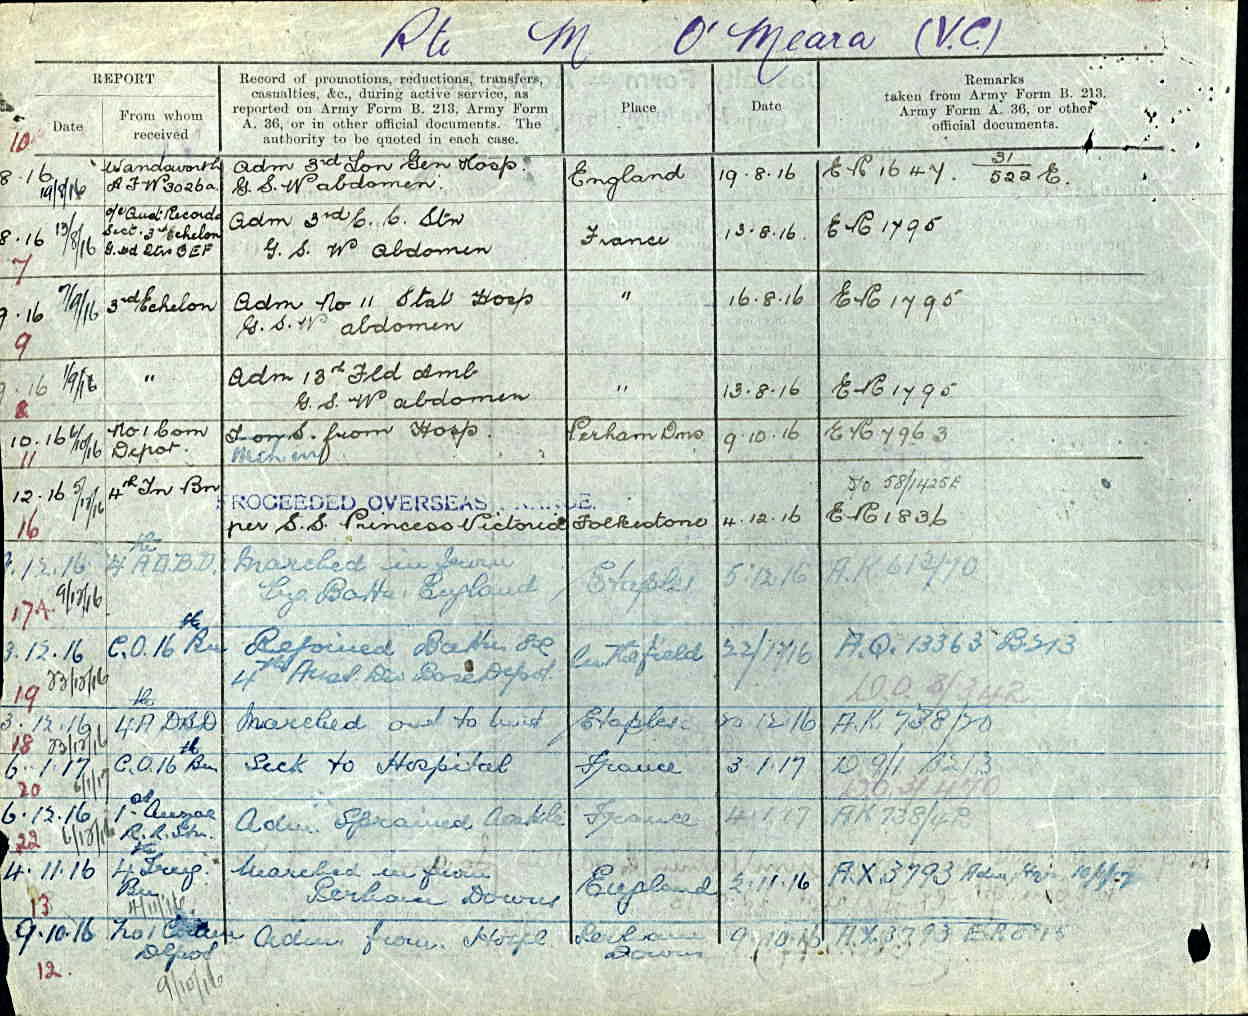 Pte M O'Meara (V.C.)
REPORT
Date
From whom received
Record of promotions, reductions, transfers, casualties, &c., during active service, as reported on Army Form B. 213, Army Form A. 36, or in other official documents. The authority to be quoted in each case.
Place
Date
Remarks
taken from Army Form B. 213, Army Form A. 36, or other official documents.
10
8.16 19/8/16 Wandsworth A F W 3026a Adm 3rd Lon Gen Hosp. England 19.8.16 E R 1647. 31/522 E.
G. S. W abdomen.
8.16 13/8/16 o/c Aust Records Sect. 3rd Echelon G.Hd Qtrs BEF Adm 3rd C. C. Stn France 13.8.16. E R 1795
7 G. S. W abdomen
9.16 7/9/16 3rd Echelon Adm No 11 Stat Hosp " 16.8.16 E R 1795
9 G. S. W abdomen
9.16 1/9/16 " Adm 13th Fld Amb " 13.8.16 E R 1795
8 G. S. W abdomen
10.16 No 1 Com Depot. from Hosp. Perham Dns 9.10.16 E R 7963
11
12.16 4th Tn Bn PROCEEDED OVERSEAS FRANCE. 58/1425F
16 per S.S. Princess Victoria Folkestone 4.12.16 E R 1836
12.16 4th A.D.B.D. Marched in from Etaples 5.12.16 A.K. 612/70
17A 9/12/16 Trg. Battn. England
3.12.16 C.O. 16th Bn Rejoined Battn 22/12/16 A.Q. 13363 B213
19 23/12/16 4th Aust. Div Base Depot
3.12.16 4th A D B D Marched out to unit Etaples 20.12.16 A.K. 738/70
18 23/12/16
6.1.17 C.O. 16th Bn Sick to Hospital France 3.1.17 B213
20 6/1/17
6.12.16 1st Anzac R. R. Stn. Adm. Sprained Ankle France 4.1.17 A K 738/42
22 6/12/16
4.11.16 4th Trng. Bn Marched in from England 2.11.16 A.X. 3793
13 4/11/16 Perham Downs
9.10.16 No 1 Com Depot Adm. from Hospl Perham Downs 9.10.16 A.X. 3793
12. 9/10/16